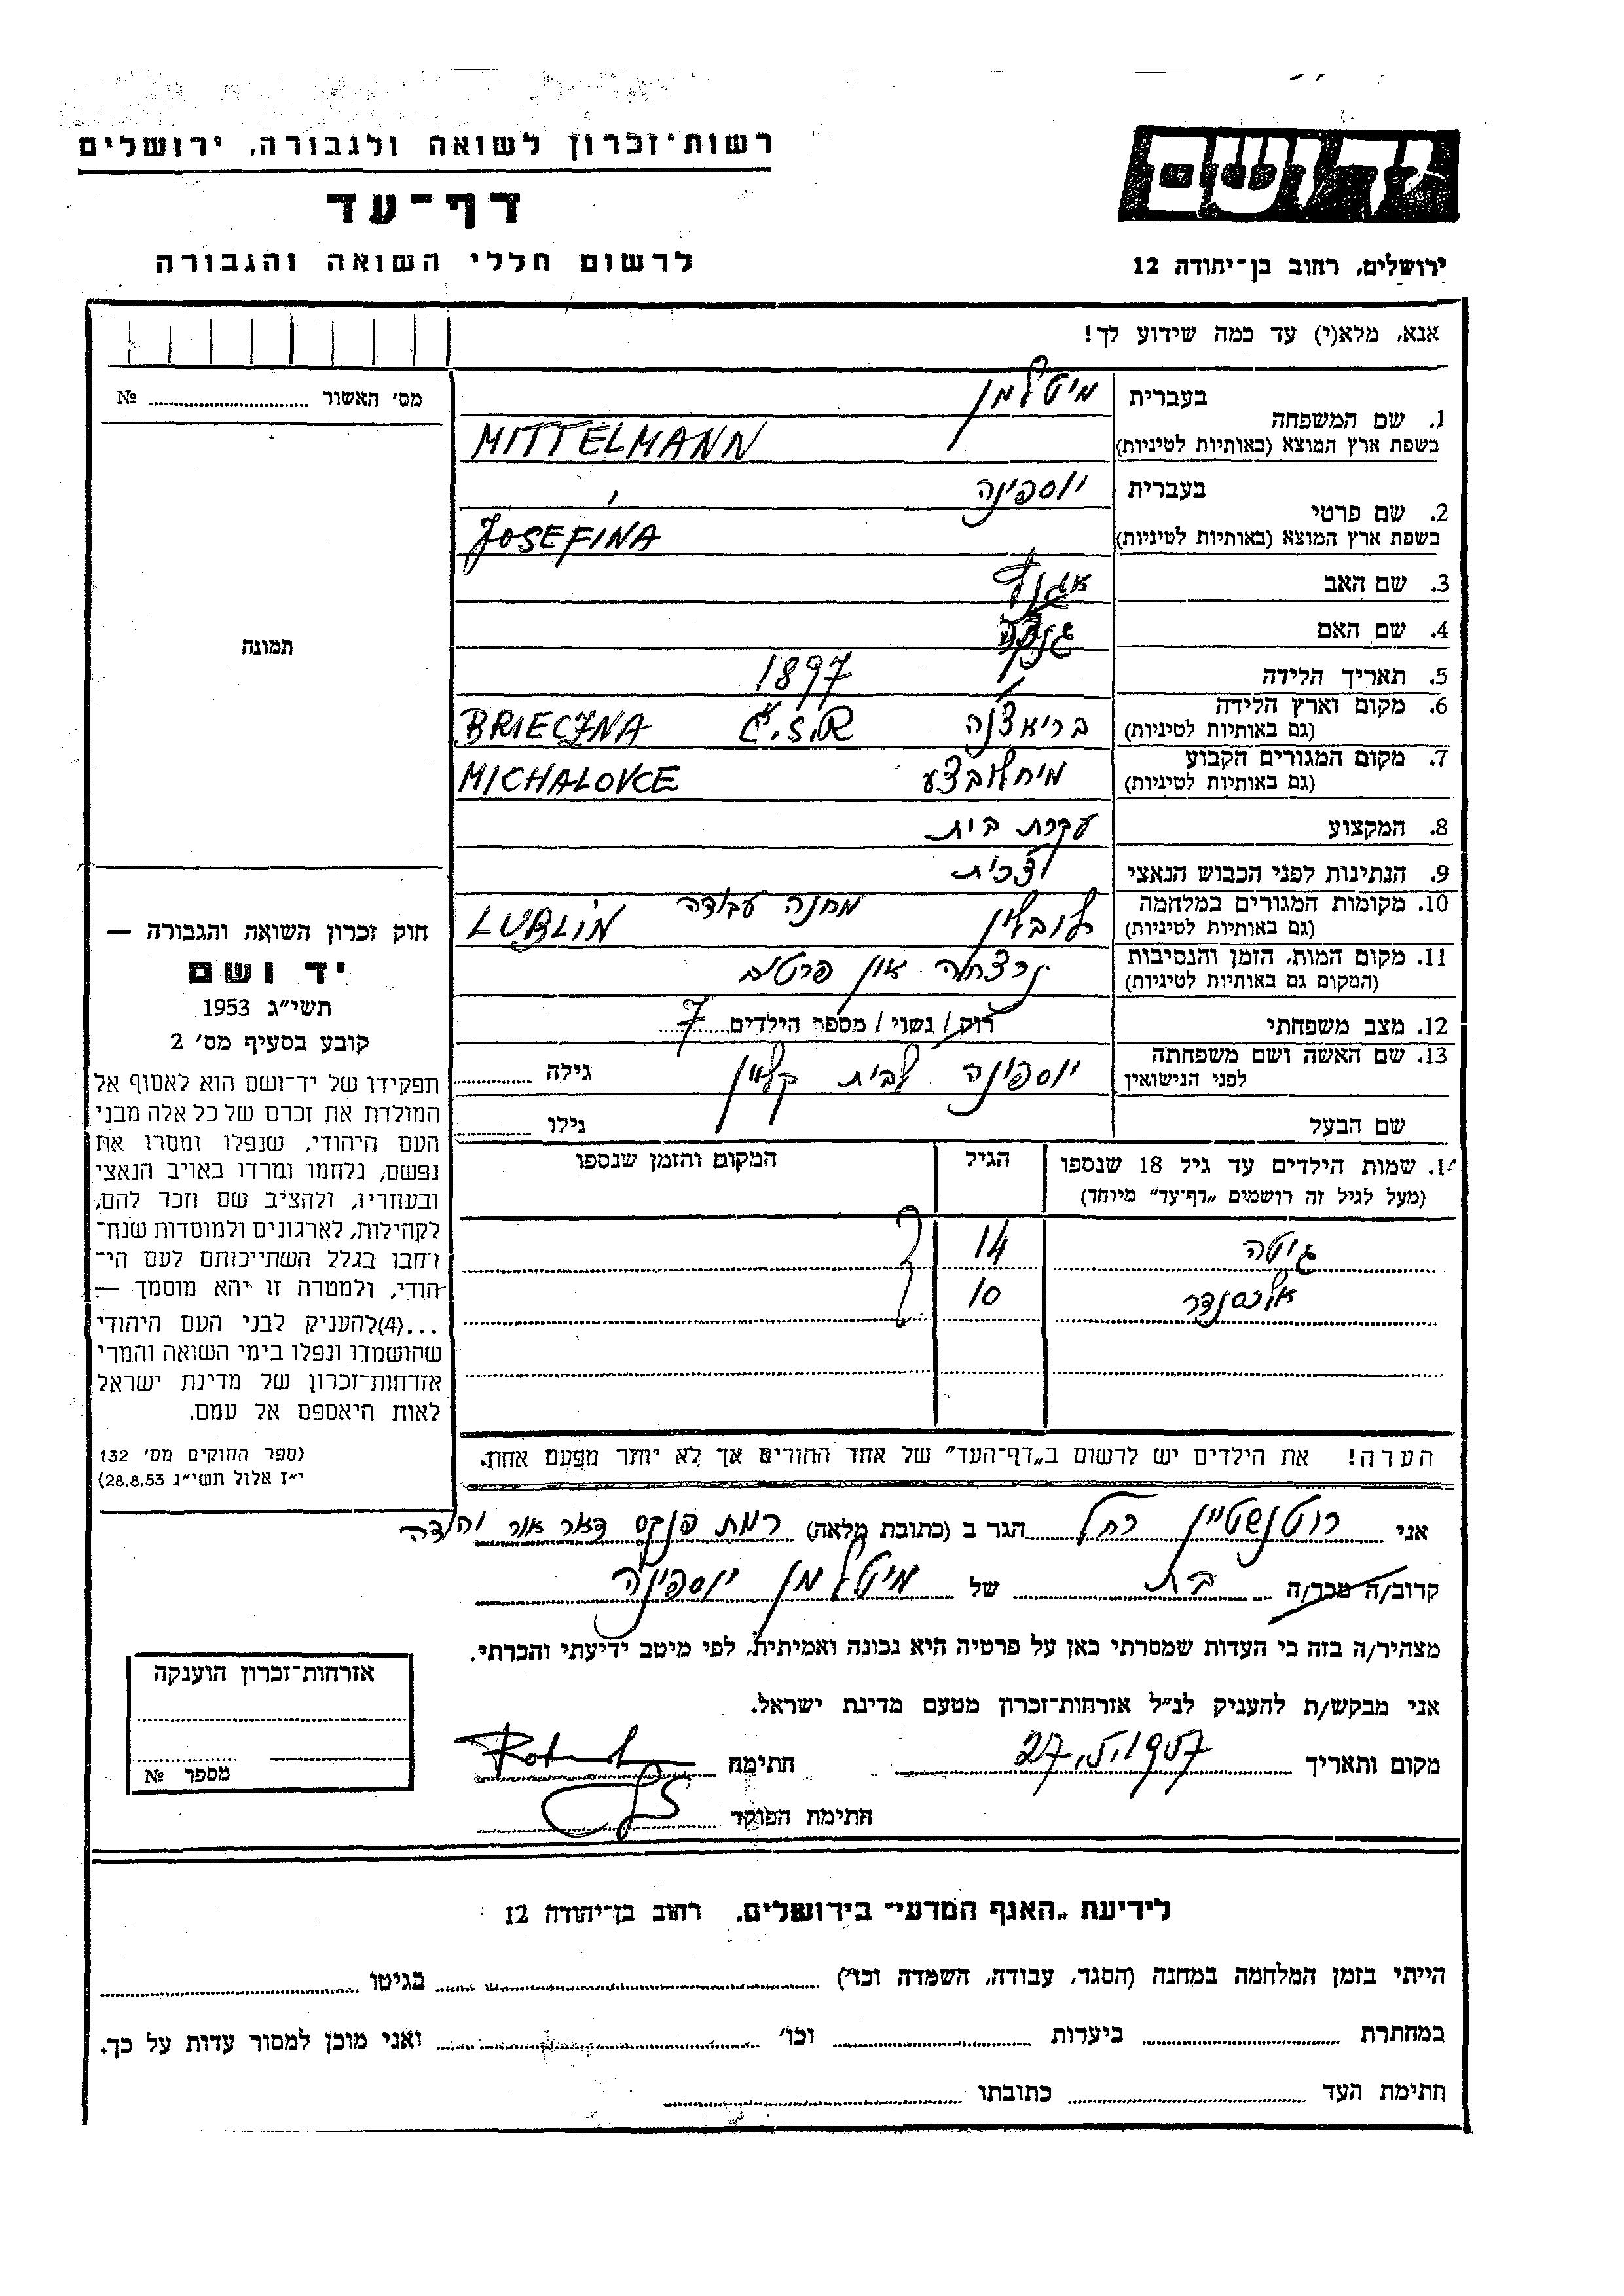 רשות־זכרון לשואה ולגבורה, ירושלים
דף־עד
לרשום חללי השואה והגבורה
יד ושם
ירושלים, רחוב בן־יהודה 12
אנא, מלא(י) עד כמה שידוע לך!
מס׳ האשור № 
תמונה
1. שם המשפחה
בעברית מיטלמן
בשפת ארץ המוצא (באותיות לטיניות) MITTELMANN
2. שם פרטי
בעברית יוספינה
בשפת ארץ המוצא (באותיות לטיניות) JOSEFÍNA
3. שם האב
4. שם האם
5. תאריך הלידה 1897
6. מקום וארץ הלידה
(גם באותיות לטיניות) בריאצ'נה Č.S.R BRIECZNA
7. מקום המגורים הקבוע
(גם באותיות לטיניות) מיחלובצע MICHALOVCE
8. המקצוע עקרת בית
9. הנתינות לפני הכבוש הנאצי צ'כית
10. מקומות המגורים במלחמה
(גם באותיות לטיניות) לובלין מחנה עבודה LUBLIN
11. מקום המות, הזמן והנסיבות
(המקום גם באותיות לטיניות) נרצחה אין פרטים
12. מצב משפחתי רווק / נשוי / מספר הילדים 7
13. שם האשה ושם משפחתה
לפני הנישואין יוספינה לבית קליין גילה
שם הבעל גילו
14. שמות הילדים עד גיל 18 שנספו
(מעל לגיל זה רושמים „דף־עד” מיוחד)
הגיל
המקום והזמן שנספו
גיטה 14
אלכסנדר 10
הערה! את הילדים יש לרשום ב„דף־העד” של אחד ההורים אך לא יותר מפעם אחת.
חוק זכרון השואה והגבורה —
יד ושם
תשי״ג 1953
קובע בסעיף מס׳ 2
תפקידו של יד־ושם הוא לאסוף אל
המולדת את זכרם של כל אלה מבני
העם היהודי, שנפלו ומסרו את
נפשם, נלחמו ומרדו באויב הנאצי
ובעוזריו, ולהציב שם וזכר להם,
לקהילות, לארגונים ולמוסדות שנח־
רבו בגלל השתייכותם לעם הי־
הודי, ולמטרה זו יהא מוסמך —
...(4)להעניק לבני העם היהודי
שהושמדו ונפלו בימי השואה והמרי
אזרחות־זכרון של מדינת ישראל
לאות היאספם אל עמם.
(ספר החוקים מס׳ 132
י״ז אלול תשי״ג 28.8.53)
אני רוטנשטיין רחל הגר ב (כתובת מלאה) רמת פנקס דאר אור יהודה
קרוב/ה מכר/ה בת של מיטלמן יוספינה
מצהיר/ה בזה כי העדות שמסרתי כאן על פרטיה היא נכונה ואמיתית, לפי מיטב ידיעתי והכרתי.
אני מבקש/ת להעניק לנ״ל אזרחות־זכרון מטעם מדינת ישראל.
מקום ותאריך 27.V.1957 חתימה
חתימת הפוקד
אזרחות־זכרון הוענקה
מספר №
לידיעת „האגף המדעי” בירושלים, רחוב בן־יהודה 12
הייתי בזמן המלחמה במחנה (הסגר, עבודה, השמדה וכו׳) בגיטו
במחתרת ביערות וכו׳ ואני מוכן למסור עדות על כך.
חתימת העד כתובתו